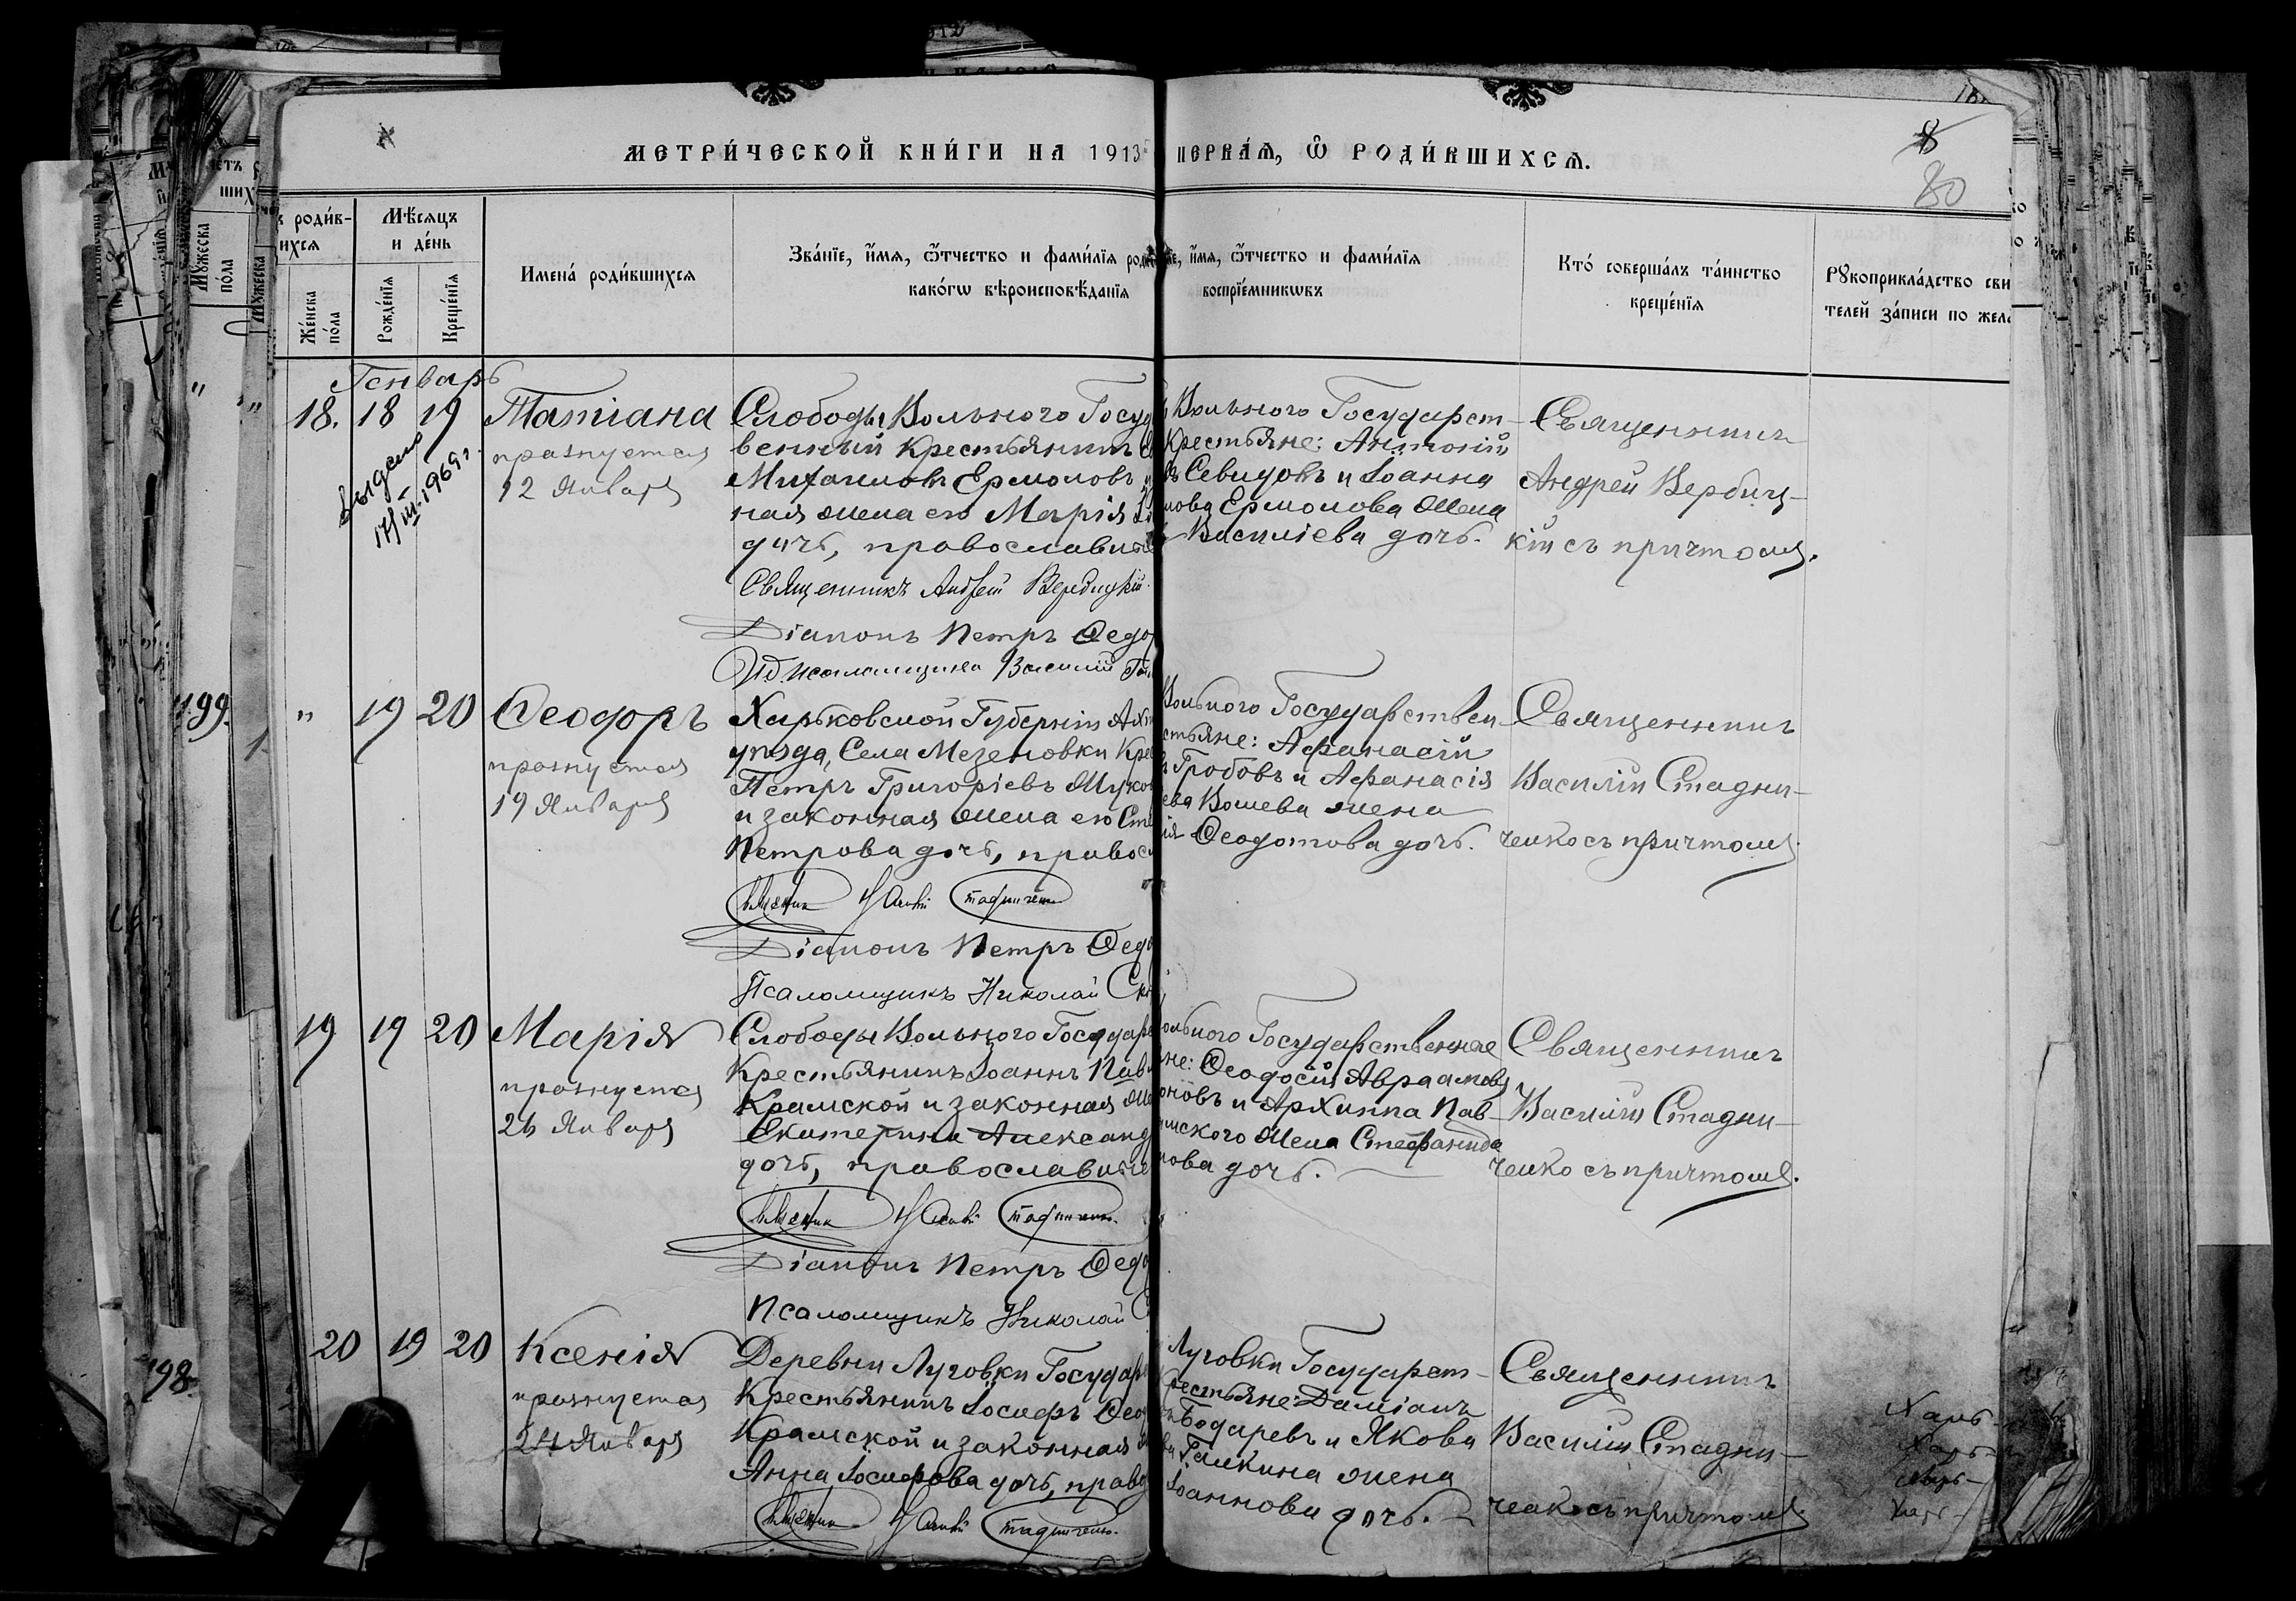 МЕТРИ́ЧЕСКОЙ КНИ́ГИ НА 1913
ПЕРВА́Ѧ, Ѡ РОДИ́ВШИХСѦ.
8
80
ъ роди́в-
ихсѧ
Мѣ́сѧцъ
и де́нь
Же́нска
по́ла
Рожде́нїѧ
Креще́нїѧ
Имена̀ роди́вшихсѧ
Зва́нїе, и́мѧ, ѻ҆́тчество и фами́лїѧ роди
како́гѡ вѣроисповѣ́данїѧ
їе, и́мѧ, ѻ҆́тчество и фами́лїѧ
воспрїе́мникѡвъ
Кто̀ соверша́лъ та́инство
креще́нїѧ
Рꙋкоприкла́дство сви
телей за́писи по жела
Генварь
18. 18 19
Татіана
празнуется
12 Января
Выдано
17/III. 1969 г.
Слободы Вольного Госуд
венный Крестьянинъ
Михаиловъ Ермоловъ и
ная жена его Марія
дочь, православные
Священникъ Андрей Вербицкій
Діаконъ Петръ Ѳедо
И.д. псаломщика Василій
Вольного Государст-
Крестьяне: Антоній
въ Севидовъ и Іоанна
лова Ермолова жена
Василіева дочь.
Священникъ
Андрей Вербиц-
кій съ причтомъ.
199.
" 19 20
Ѳеодоръ
празнуется
19 Января
Харьковской Губерніи Ахт
уѣзда, Села Мезеновки Крес
Петръ Григоріевъ
и законная жена его Сте
Петрова дочь, правос
Діаконъ Петръ Ѳедо
Псаломщикъ Николай
Вольного Государствен-
стьяне: Аѳанасій
Гробовъ и Аѳанасія
ева Вошева жена
Ѳеодотова дочь.
Священникъ
Василій Стадни-
ченко съ причтомъ.
19 19 20
Марія
празнуется
26 Января
Слободы Вольного Государс
Крестьянинъ Іоаннъ Павл
Крамской и законная же
Екатерина Александ
дочь, православные
Діаконъ Петръ Ѳедо
Псаломщикъ Николай
ольного Государственные
яне: Ѳеодосій Авраамовъ
оновъ и Архиппа Пав-
мского жена Стефанида
нова дочь.
Священникъ
Василій Стадни-
ченко съ причтомъ.
198.
20 19 20
Ксенія
празнуется
24 Января
Деревни Луговки Государ
Крестьянинъ Іосифъ Ѳео
Крамской и законная
Анна Іосифова дочь, право
Луговки Государст-
рестьяне: Даміанъ
Бодаревъ и Якова
Галкина жена
Іоаннова дочь.
Священникъ
Василій Стадни-
ченко съ причтомъ.